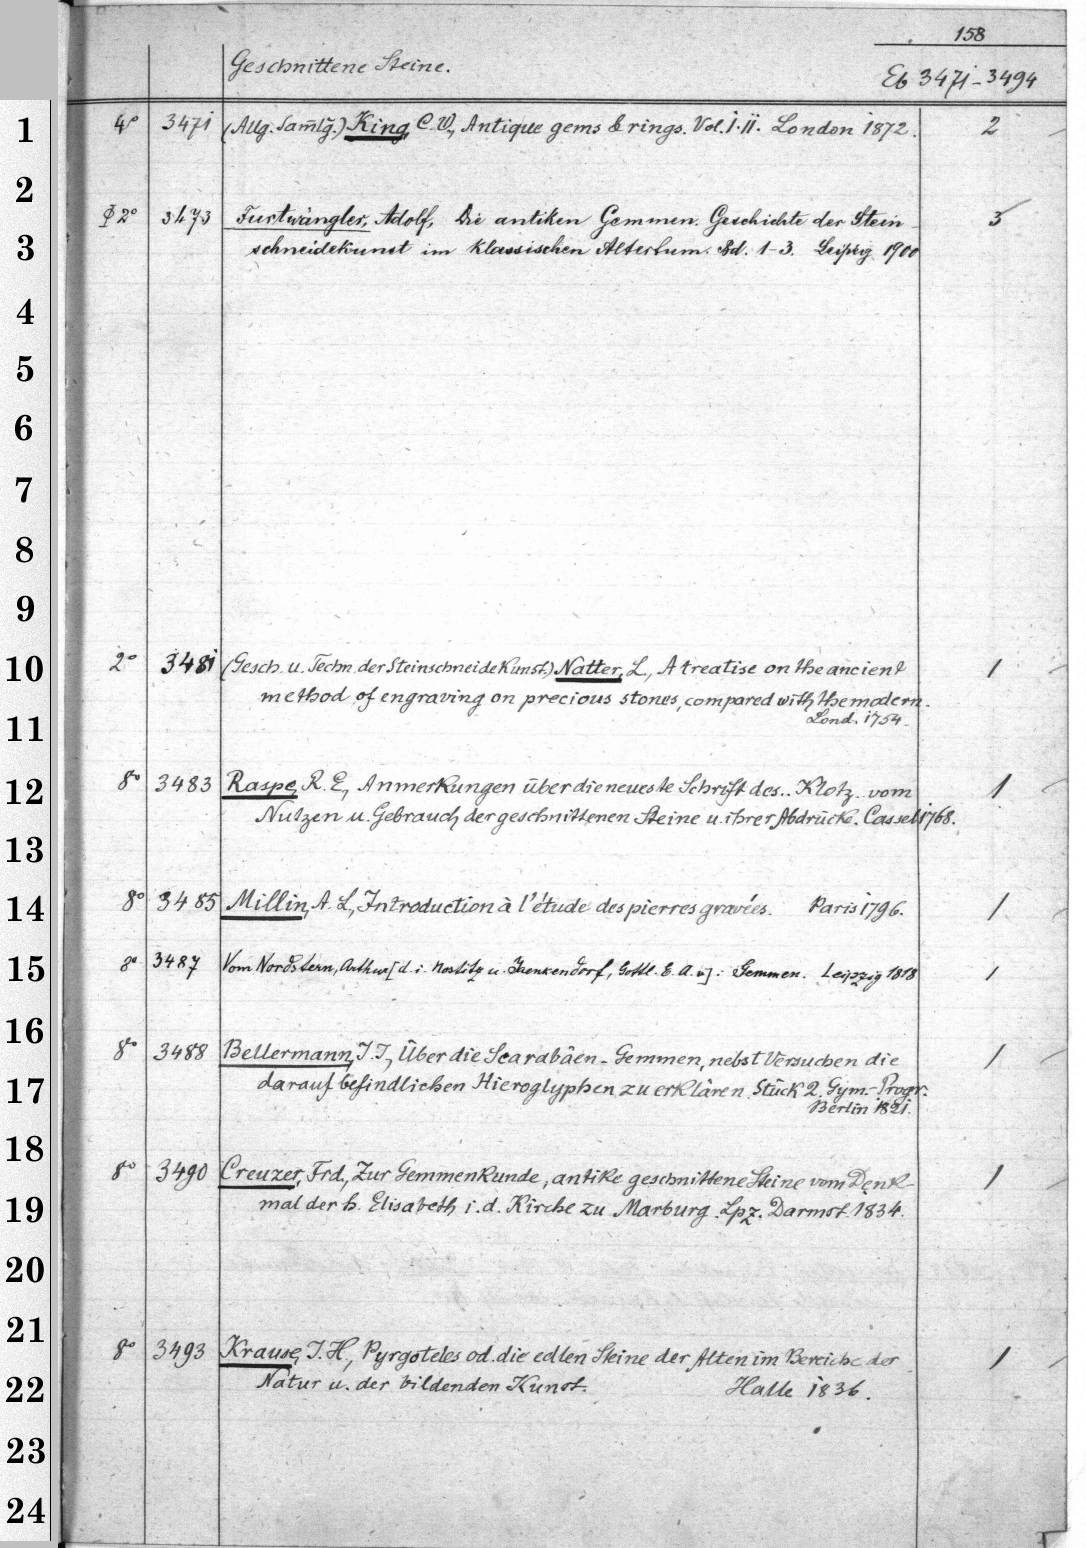 158
Geschnittene Steine.
Eb 3471-3494
1 4° 3471 (Allg. Sam̄lg.) King, C. W., Antique gems & rings. Vol. I. II. London 1872. 2
2
2° 3473 Furtwängler, Adolf, Die antiken Gemmen. Geschichte der Stein- 3
3 schneidekunst im klassischen Altertum. Bd. 1-3. Leipzig 1900
4
5
6
7
8
9
10 2° 3481 (Gesch. u. Techn. der Steinschneidekunst.) Natter, L., A treatise on the ancient 1
method of engraving on precious stones, compared with the modern.
11 Lond. 1754.
12 8° 3483 Raspe, R. E., Anmerkungen über die neueste Schrift des.. Klotz vom 1
Nutzen u. Gebrauch der geschnittenen Steine u. ihrer Abdrücke. Cassel 1768.
13
14 8° 3485 Millin, A. L., Introduction à l'étude des pierres gravées. Paris 1796. 1
15 8° 3487 Vom Nordstern, Arthur [d. i. Nostitz u. Jaenkendorf, Gottl. E. A. v.]: Gemmen. Leipzig 1818 1
16 8° 3488 Bellermann, J. J., Über die Scarabäen-Gemmen, nebst Versuchen die 1
17 darauf befindlichen Hieroglyphen zu erklären. Stück 2. Gym.-Progr.
Berlin 1821.
18 8° 3490 Creuzer, Frd., Zur Gemmenkunde, antike geschnittene Steine vom Denk- 1
19 mal der h. Elisabeth i. d. Kirche zu Marburg. Lpz. Darmst. 1834.
20
21 8° 3493 Krause, J. H., Pyrgoteles od. die edlen Steine der Alten im Bereiche der 1
22 Natur u. der bildenden Kunst. Halle 1836.
23
24